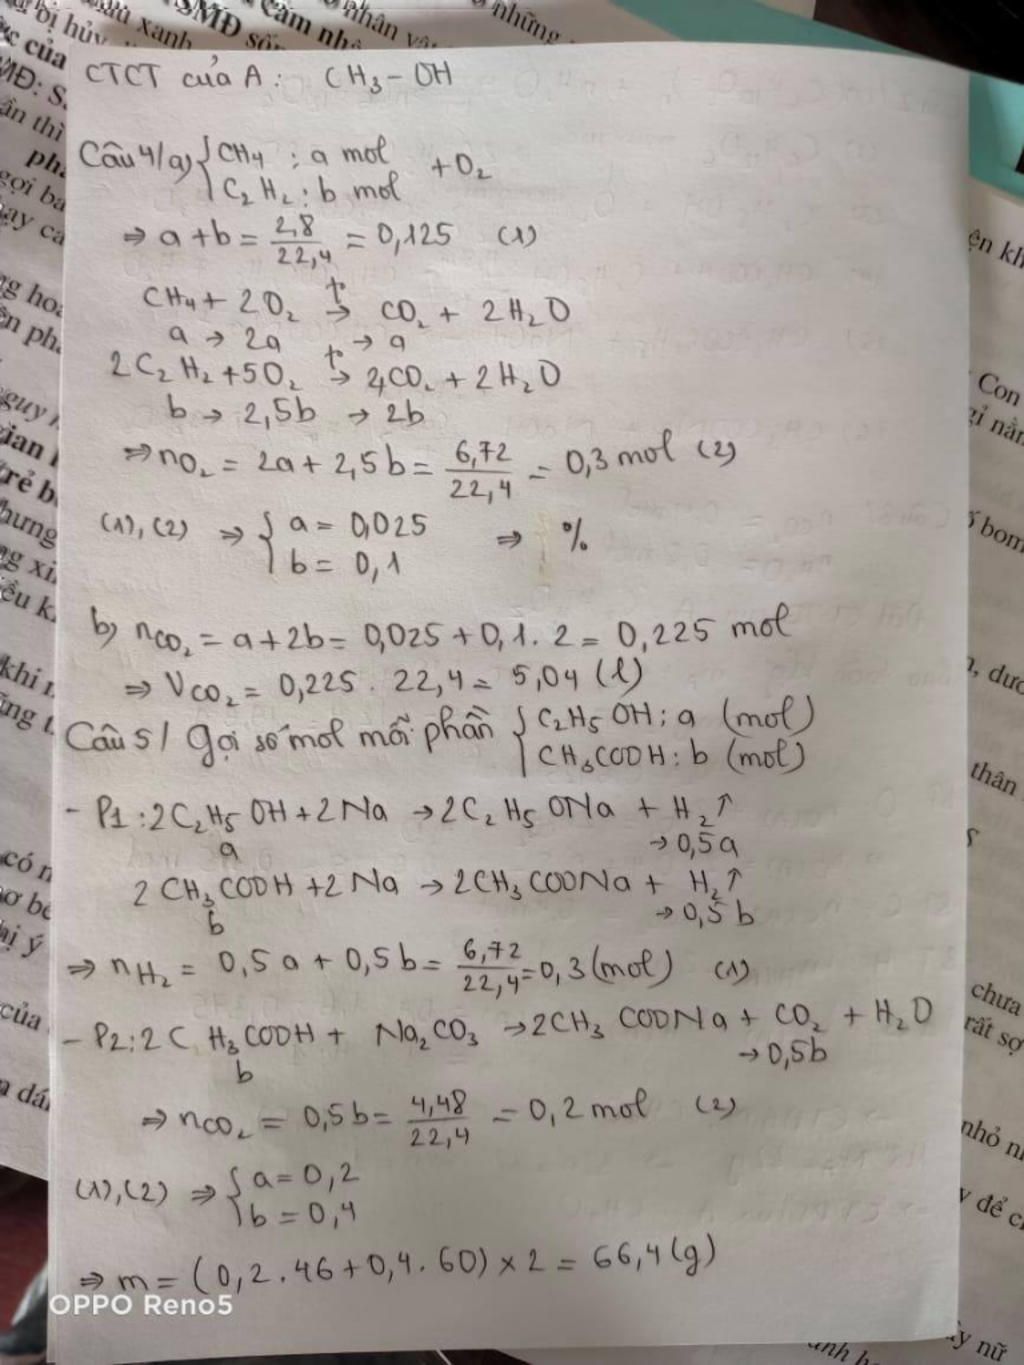 CTCT của A: CH₃-OH
Câu 4/a) { CH₄ : a mol + O₂
C₂H₂ : b mol
⇒ a+b = 2,8/22,4 = 0,125 (1)
CH₄ + 2O₂ t°→ CO₂ + 2H₂O
a → 2a → a
2C₂H₂ + 5O₂ t°→ 4CO₂ + 2H₂O
b → 2,5b → 2b
⇒ nO₂ = 2a + 2,5b = 6,72/22,4 = 0,3 mol (2)
(1), (2) ⇒ { a = 0,025 ⇒ %
b = 0,1
b) nCO₂ = a+2b = 0,025 + 0,1 . 2 = 0,225 mol
⇒ VCO₂ = 0,225 . 22,4 = 5,04 (l)
Câu 5/ Gọi số mol mỗi phần { C₂H₅OH : a (mol)
CH₃COOH : b (mol)
- P1 : 2C₂H₅OH + 2Na → 2C₂H₅ONa + H₂↑
a → 0,5a
2CH₃COOH + 2Na → 2CH₃COONa + H₂↑
b → 0,5b
⇒ nH₂ = 0,5a + 0,5b = 6,72/22,4 = 0,3 (mol) (1)
- P2 : 2CH₃COOH + Na₂CO₃ → 2CH₃COONa + CO₂ + H₂O
b → 0,5b
⇒ nCO₂ = 0,5b = 4,48/22,4 = 0,2 mol (2)
(1), (2) ⇒ { a = 0,2
b = 0,4
⇒ m = (0,2 . 46 + 0,4 . 60) × 2 = 66,4 (g)
OPPO Reno5